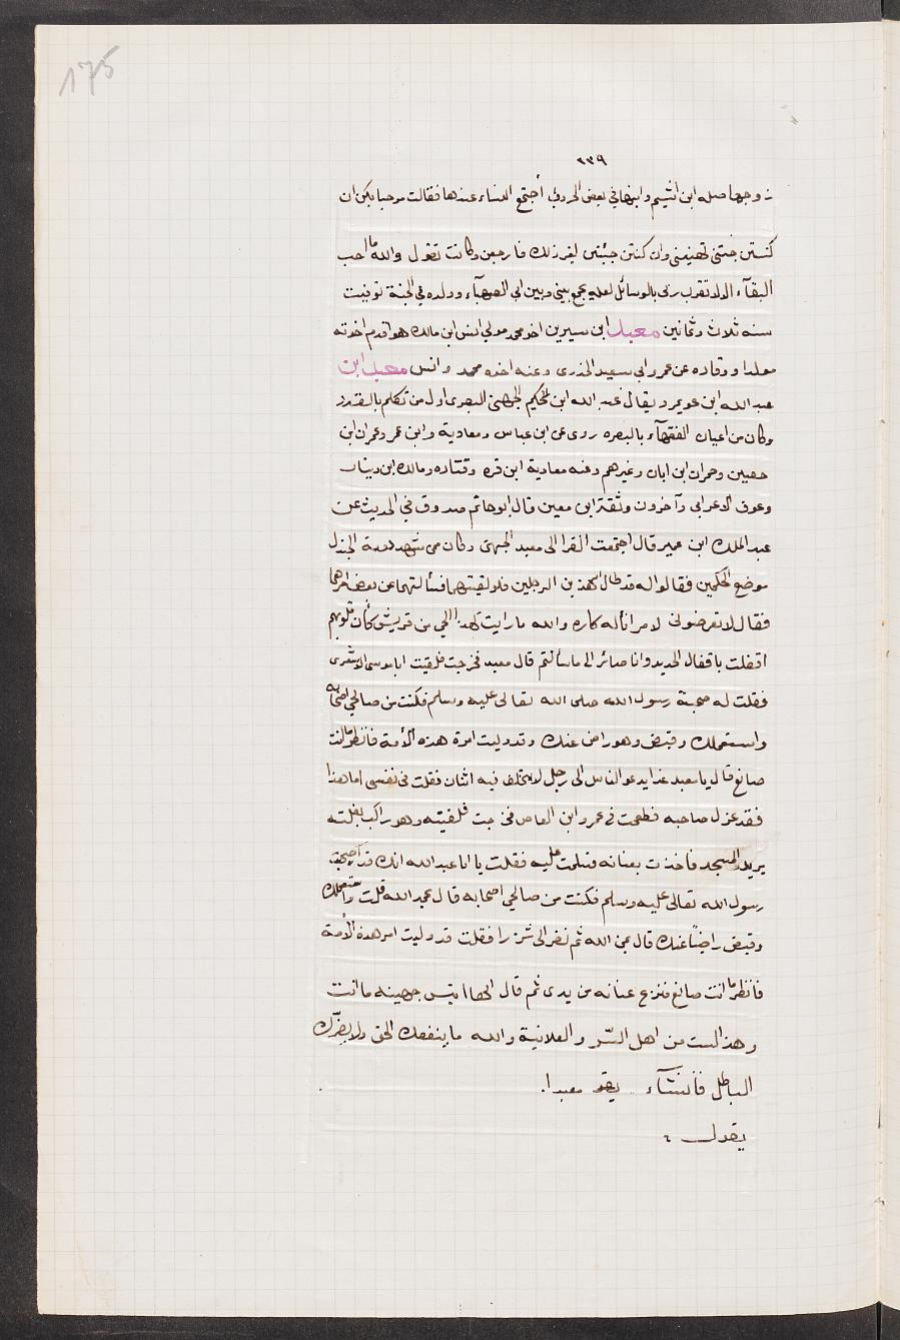 175
٢٣٩
زوجها صله ابن اشيم وابنها في بعض الحروب أجتمع النساء عندها فقالت مرحبا بكن ان
كنتن جئتني لتهنيني وان كنتن جئتن لغير ذلك فارجعن وكانت تقول والله ما احب
البقآء الا لاتقرب ربى بالوسائل لعله يجمع بيني وبين ابي الصهبآء وولده في الجنة توفيت
سنه ثلاث وثمانين معبد ابن سيرين اخو محمد مولى انس ابن مالك هو اقدم اخوته
مولدا ووفاده عن عمر وابي سعيد الخدرى وعنه اخوه محمد وانس معبد ابن
عبد الله ابن عويمر ويقال عبد الله ابن عكيم الجهنى البصرى اول من تكلم بالقدر
وكان من اعيان الفقهآء بالبصره روى عن ابن عباس ومعاوية وابن عمر وعمران ابن
حصين وحمران ابن ابان وغيرهم وعنه معاوية ابن قره وقتاده ومالك ابن دينار
وعوف الاعرابى وآخرون وثقة ابن معين قال ابو حاتم صدوق في الحديث عن
عبد الملك ابن عمير قال اجتمعت القرا الى معبد الجهنى وكان ممن شهد دومة الجندل
موضع الحكمين فقالوا له قد طال امر هذين الرجلين فلو لقيتهما فسألتهما عن بعض امرهما
فقال لا تعرضونى لامر انا له كاره والله ما رايت كهذا الحي من قريش كأن قلوبهم
اقفلت باقفال الحديد وانا صائر الى ما سألتم قال معبد فخرجت فلقيت ابا موسى الاشعرى
فقلت له صحبة رسول الله صلى الله تعالى عليه وسلم فكنت من صالحي اصحابه
واستعملك وقبض وهو راض عنك وقد وليت امرة هذه الأمة فانظر ما انت
صانع قال يا معبد غدا يدعو الناس الى رجل لا يختلف فيه اثنان فقلت فى نفسى اما هذا
فقد عزل صاحبه فطمعت في عمرو ابن العاص فخرجت فلقيته وهو راكب بغلته
يريد المسجد فاخذت بعنانه فسلمت عليه فقلت يا ابا عبد الله انك قد صحبت
رسول الله تعالى عليه وسلم فكنت من صالحي اصحابه قال بحمد الله قلت واستعملك
وقبض راضيًا عنك قال بمن الله ثم نظر الى شزرا فقلت قد وليت امر هذه الأمة
فانظر ما انت صانع فنزع عنانه من يدى ثم قال ايها تيس جهينه ما انت
وهذا لست من اهل السّر والعلانية والله ما ينفعك الحق ولا يضرّك
الباطل فانشآء معبدا.
يقول